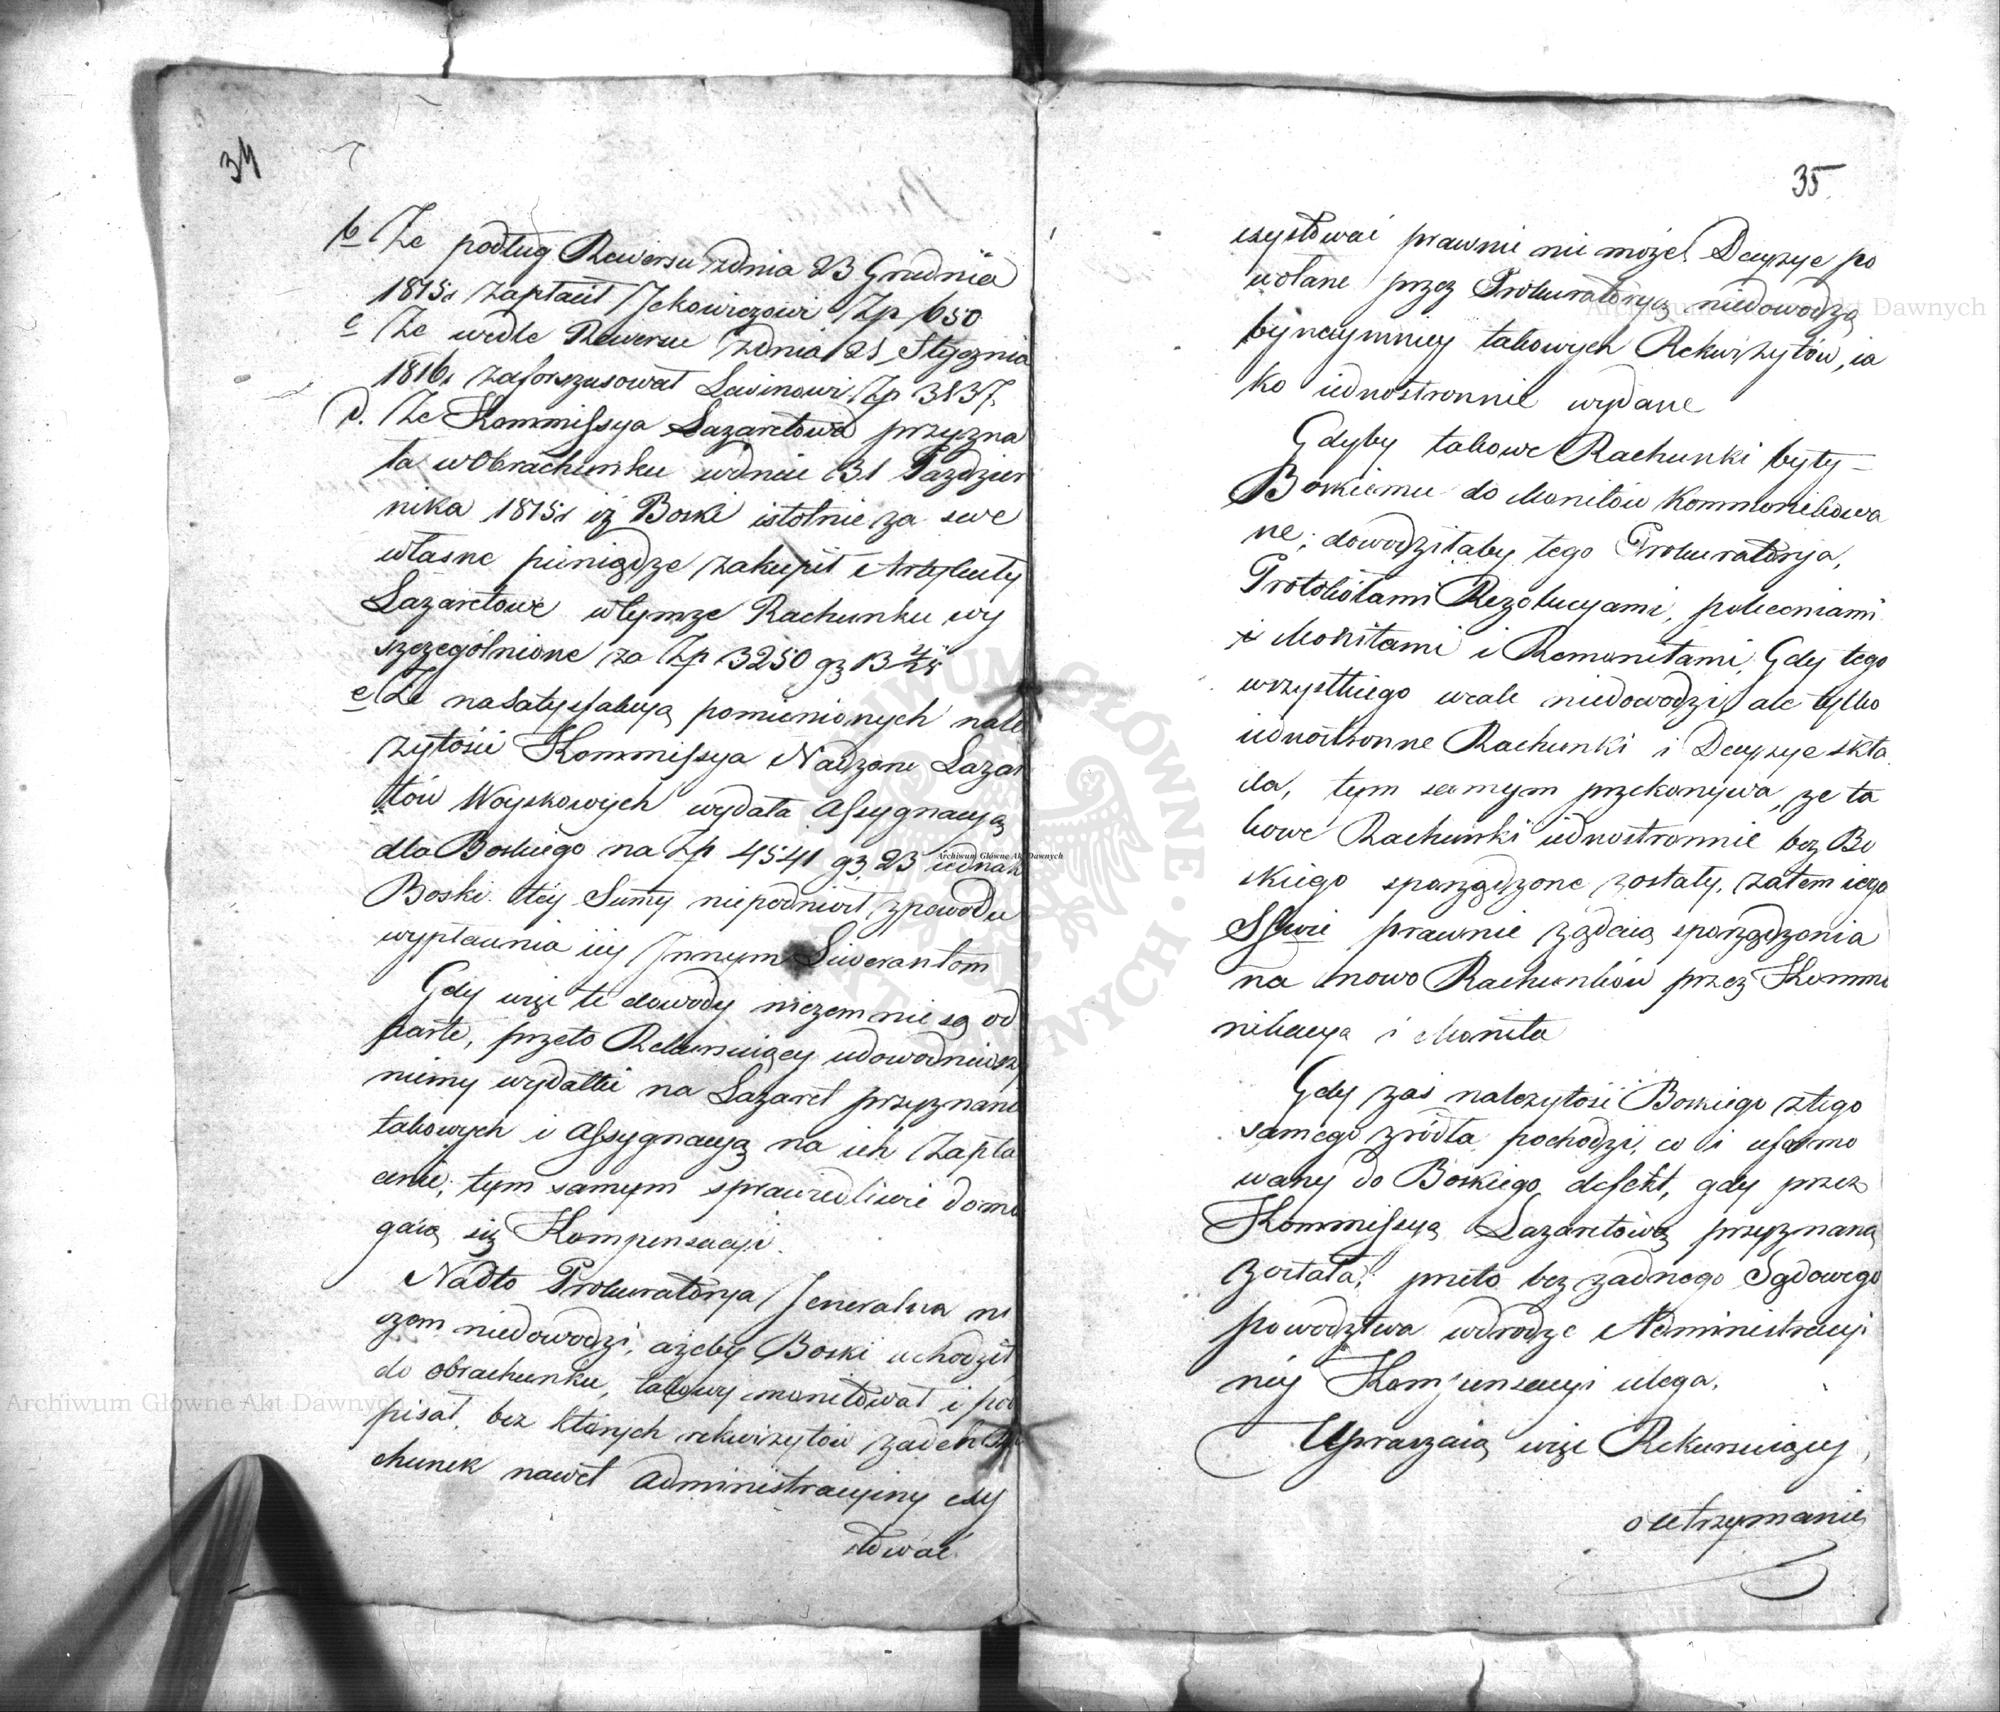 34
b Że podług Rewersu zdnia 23 Grudnia
1815r zapłacił Jckowiczowi Zp 650
c Że wedle Rewersu zdnia 21 Stycznia
1816r zaforszusował Lewinowi Zp 3837.
d. Że Kommissya Lazaretowa przyzna
ła wObrachunku wdniu 31 Pazdzier
nika 1815r iż Boski istotnie za swe
własne pieniądze zakupił Artykuły
Lazaretowe wtymże Rachunku wy
szczególnione za Zp 3250 gr 13
e Że naSatysfakcyą pomienionych nale
żytości Kommissya Nadzoru Lazar
tów Woyskowych wydała Assygnacyą
dla Boskiego na Zp 4541 gr 23 iednak
Boski téy Summy niepodniósł zpowodu
wypłacenia iéy Innym Liwerantom
Gdy więc te dowody niczem nie są od
parte, przeto Rekursuiący udowodniwsz
niemy wydatki na Lazaret przyznani
takowych i Assygnacyą na ich Zapła
cenie, tym samym sprawiedliwie doma
gaią się Kompensacyi.
Nadto Prokuratorya Jeneralna ni
czem niedowodzi, ażeby Boski wchodził
do obrachunku, takowy monitował i pod
pisał, bez których rekwizytów żaden Ra
chunek nawet Administracyiny exy
stować
35
exystować prawnie nie może. Decyzye po
wołane przez Prokuratoryą niedowodzą
bynaymniey takowych Rekwizytów, ia
ko iednostronnie wydane
Gdyby takowe Rachunki były
Boskiemu do Monitów Kommunikowa
ne, dowodziłaby tego Prokuratorya,
Protokółami Rezolucyami, poleceniami
i Monitami i Remonitami, Gdy tego
wszystkiego wcale niedowodzi, ale tylko
iednostronne Rachunki i Decyzye skła
da, tym samym przekonywa, że ta
kowe Rachunki iednostronnie bez Bo
skiego sporządzone zostały, zatem iego
SSwie prawnie żądaią sporządzenia
na nowo Rachunków przez Kommu
nikacyą i Monita
Gdy zaś należytość Boskiego ztego
samego zródła pochodzi, co i uformo
wany do Boskiego defekt, gdy przez
Kommissyą Lazaretową przyznaną
została, przeto bez żadnego Sądowego
powodztwa wdrodze Administracyi
néy Kompensacyi ulega.
Upraszaią więc Rekursuiący
o utrzymanie